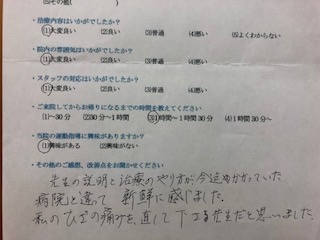 (5)その他(          )
・治療内容はいかがでしたか?
(1)大変良い (2)良い (3)普通 (4)悪い (5)よくわからない
・院内の雰囲気はいかがでしたか?
(1)大変良い (2)良い (3)普通 (4)悪い
・スタッフの対応はいかがでしたか?
(1)大変良い (2)良い (3)普通 (4)悪い
・ご来院してからお帰りになるまでの時間を教えてください
(1)〜30分 (2)30分〜1時間 (3)1時間〜1時間30分 (4)1時間30分〜
・当院の運動指導に興味がありますか?
(1)興味がある (2)興味がない
・その他のご感想、改善点をお聞かせください
先生の説明と治療のやり方が、今迄かかっていた
病院と違って 新鮮に感じました。
私のひざの痛みを、直して下さる先生だと思いました。